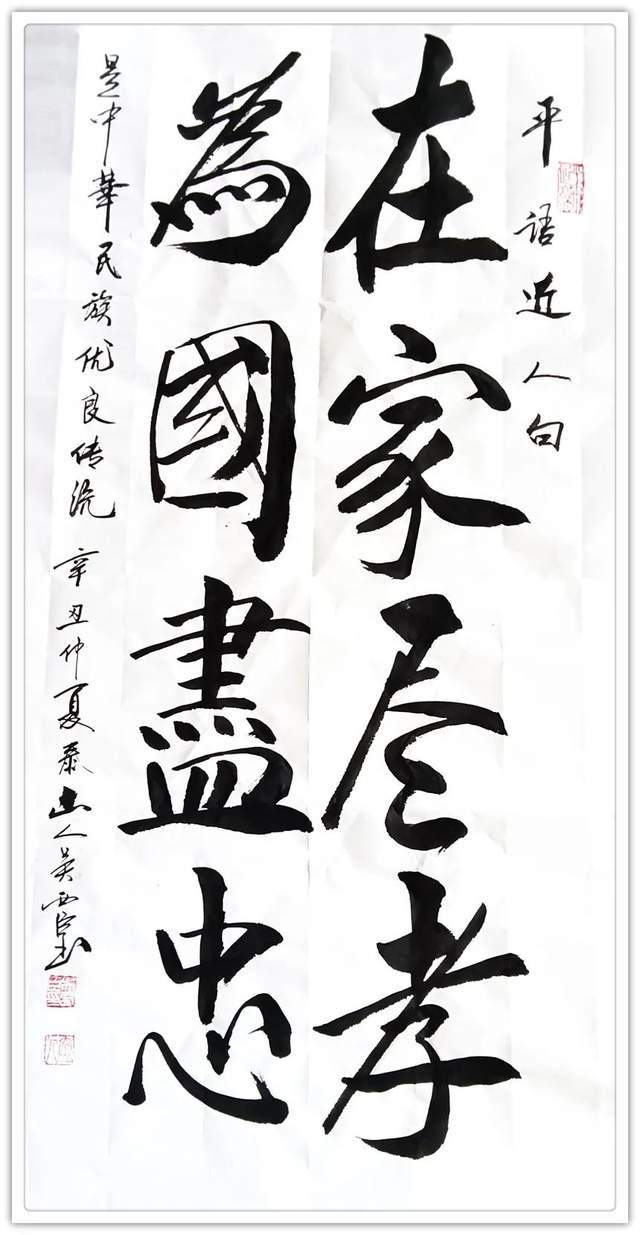 平语近人句
在家尽孝
為國盡忠
是中華民族优良传统
辛丑仲夏泰山人吴西